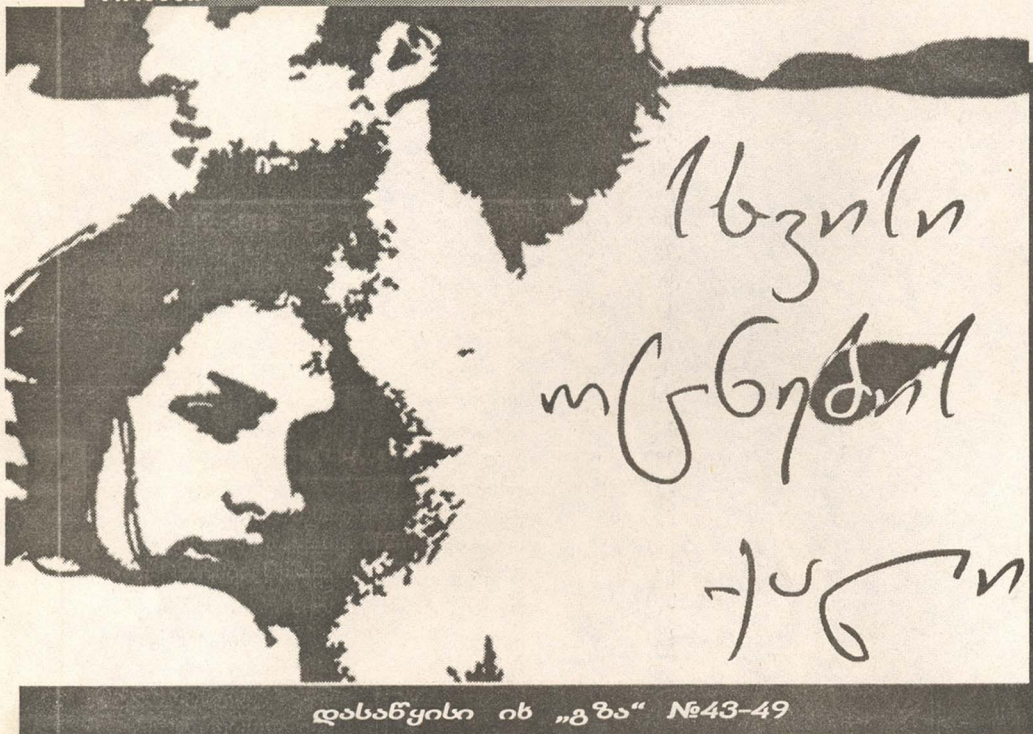 სხვისი
ოცნების
ქალი
დასაწყისი იხ. „გზა“ №43-49